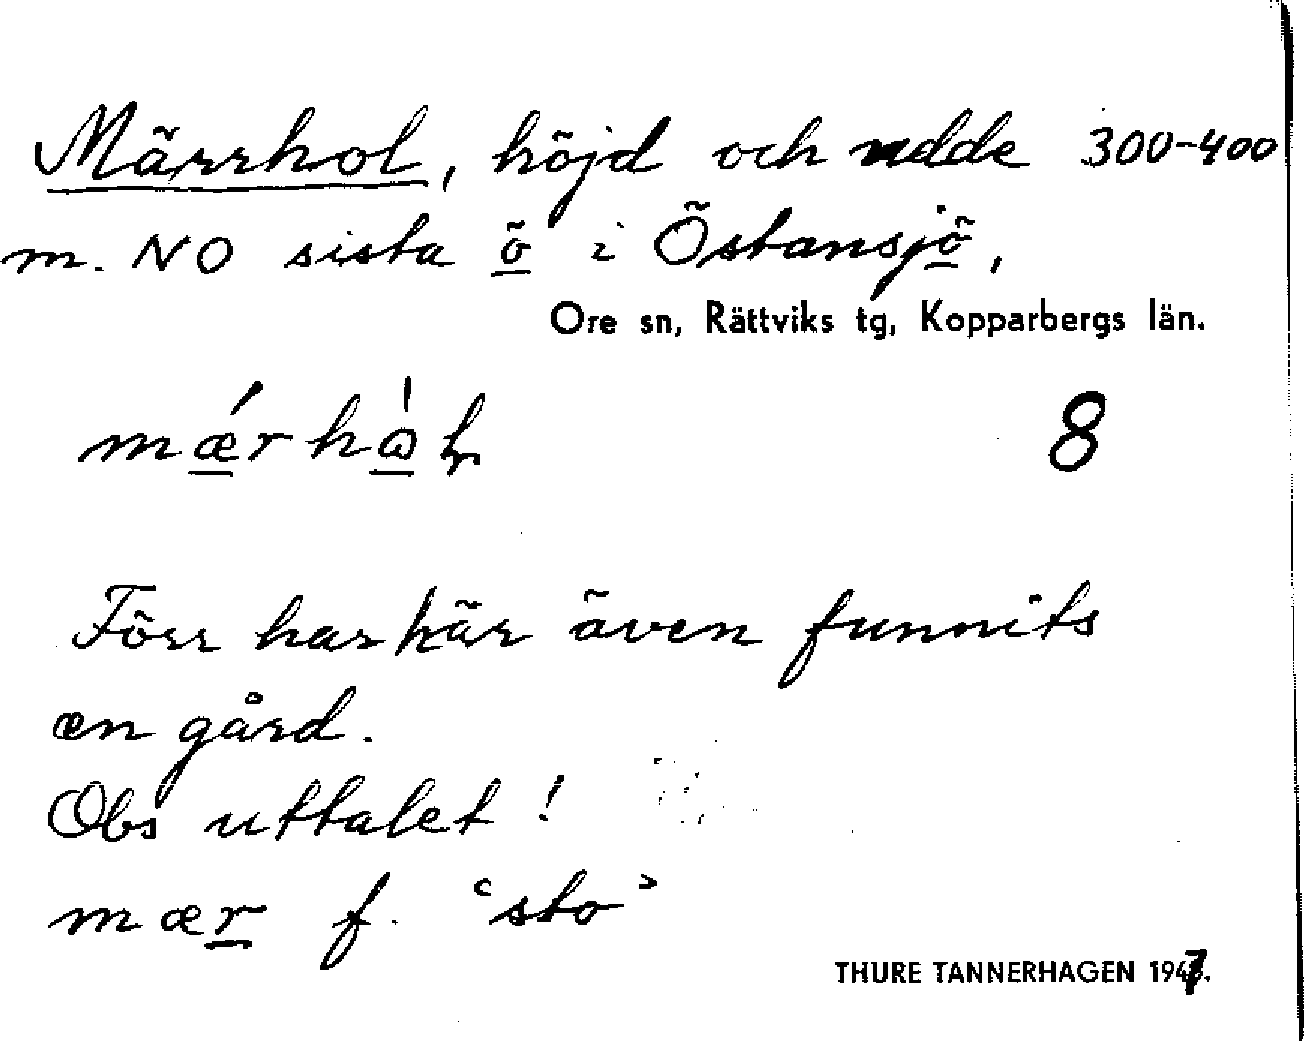 Märrhol, höjd och udde 300-400
m. NO sista ö i Östansjö,
Ore sn, Rättviks tg, Kopparbergs län.
8
Förr har här även funnits
en gård.
Obs uttalet!
mær f. ‘sto’
THURE TANNERHAGEN 1947.